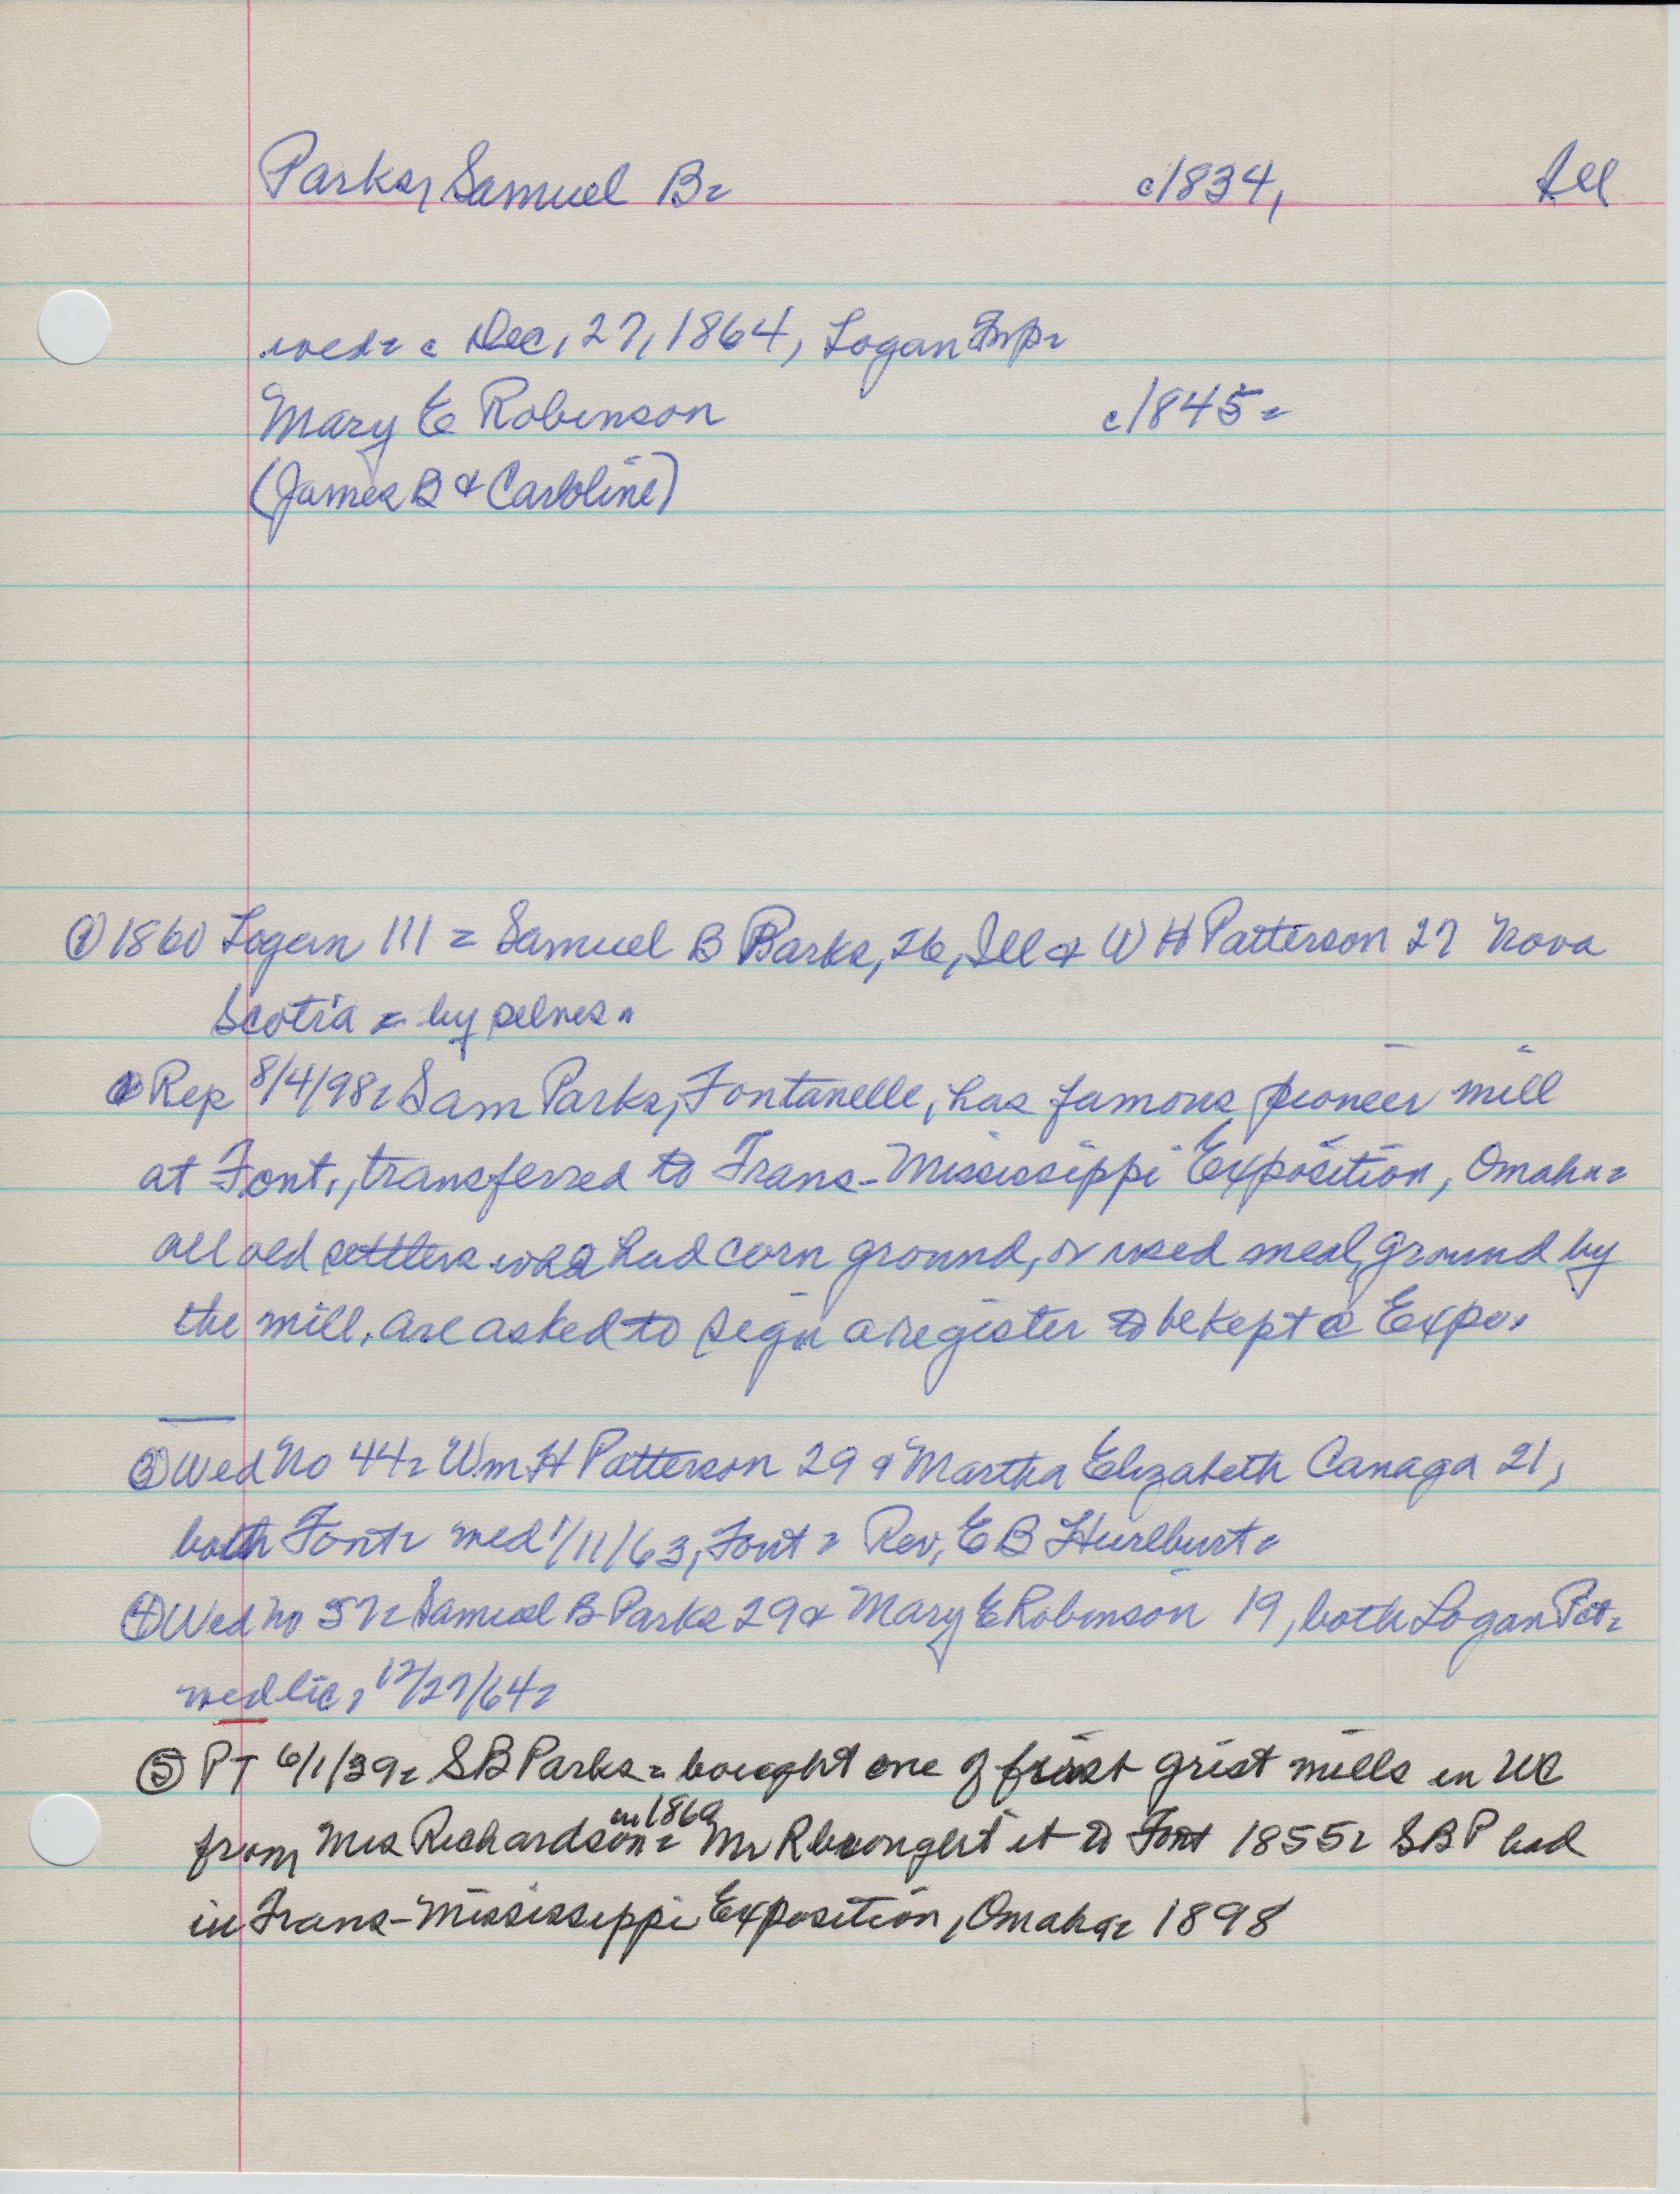 Parks, Samuel B= c1834, Ill
wed= c Dec, 27, 1864, Logan Twp=
Mary E Robinson c1845=
(James B & Caroline)
① 1860 Logan 111 = Samuel B Parks, 26, Ill & W H Patterson 27 Nova
Scotia = by selves=
Rep 8/4/98= Sam Parks, Fontanelle, has famous pioneer mill
at Font., transferred to Trans-Mississippi Exposition, Omaha=
all old settlers who had corn ground, or used meal ground by
the mill, are asked to sign a register to be kept @ Expo.
③ Wed No 44= Wm H Patterson 29 & Martha Elizabeth Canaga 21,
both Font= wed 1/11/63, Font= Rev, E B Hurlburt=
④ Wed No 57= Samuel B Parks 29 & Mary E Robinson 19, both Logan Pct=
wed lic, 12/27/64=
⑤ PT 6/1/39= SB Parks= bought one of first grist mills in WC
from Mrs Richardson= in 1869 Mr R brought it to Font 1855= SBP had
in Trans-Mississippi Exposition, Omaha= 1898